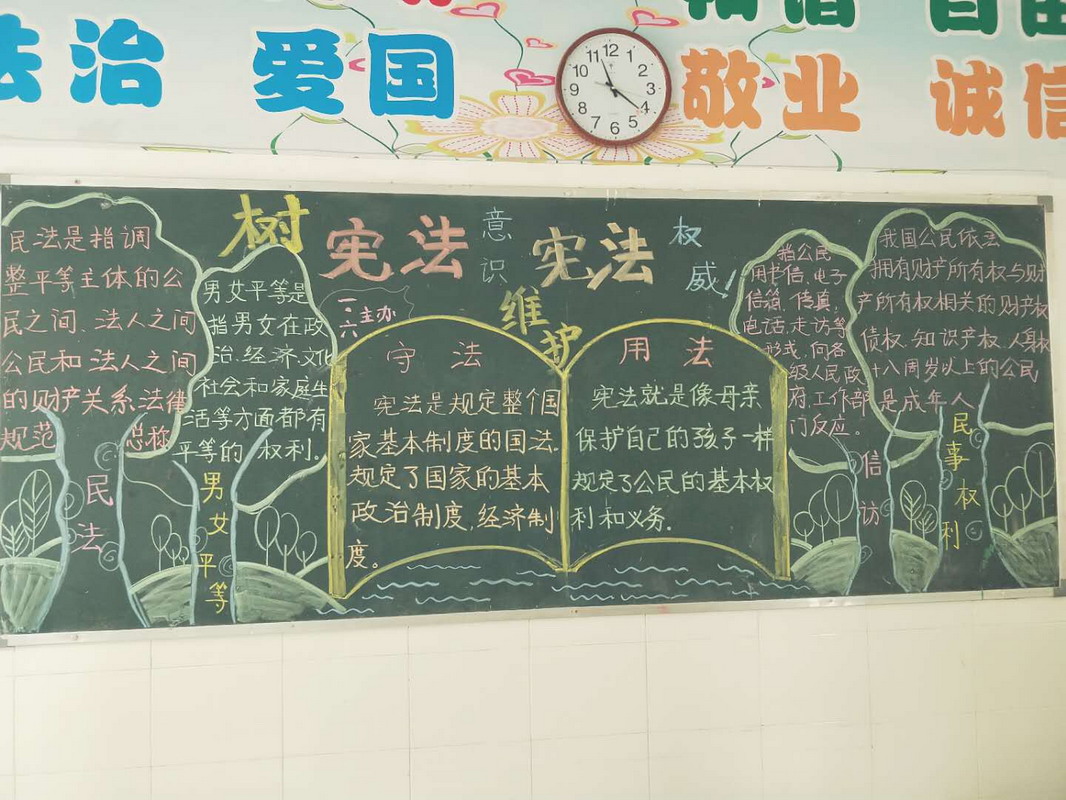 和谐 自由
法治 爱国 敬业 诚信
11 12 1
10 2
9 3
8 4
7 6 5
树宪法意识 维护宪法权威!
三六主办
民法是指调
整平等主体的公
民之间、法人之间
公民和法人之间
的财产关系法律
规范 总称
民法
男女平等是
指男女在政
治、经济、文化
社会和家庭生
活等方面都有
平等的 权利。
男女平等
守法
宪法是规定整个国
家基本制度的国法.
规定了国家的基本
政治制度,经济制
度。
用法
宪法就是像母亲
保护自己的孩子一样
规定了公民的基本权
利和义务.
指公民
用书信、电子
信箱、传真,
电话,走访等
形式,向各
级人民政
府,工作部
门反应。
信访
我国公民依法
拥有财产所有权与财
产所有权相关的财产权
债权、知识产权、人身权
十八周岁以上的公民
是成年人
民事权利